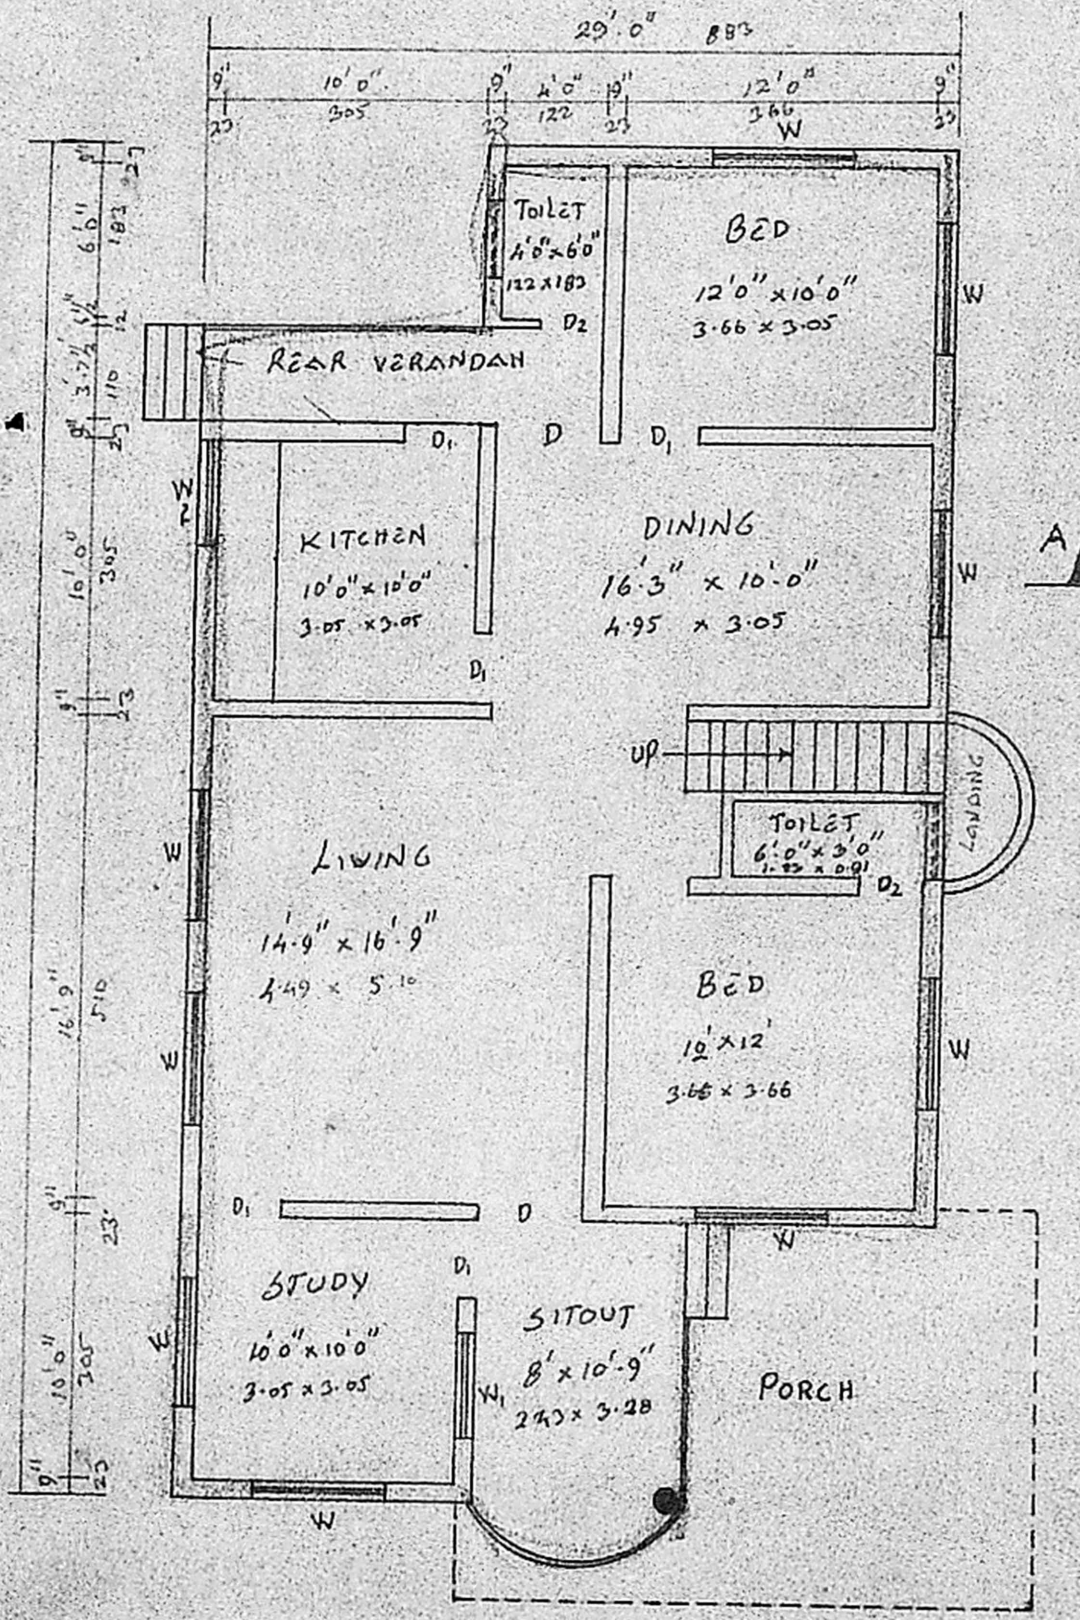 29'.0" 883
9" 10'0" 9" 4'0" 9" 12'0" 9"
23 305 23 122 23 366 23
W
9" 23
6'0" 183
4½" 12
3'.7½" 110
9" 23
10'0" 305
9" 23
16'9" 510
9" 23
10'0" 305
9" 23
TOILET
4'0"x6'0"
122x183
D2
BED
12'0"x10'0"
3.66 x 3.05
W
REAR VERANDAH
D1 D D1
W
KITCHEN
10'0"x10'0"
3.05 x3.05
D1
DINING
16'.3" x 10'.0"
4.95 x 3.05
W
A
UP
LANDING
TOILET
6'.0" x 3'0"
1.83 x 0.91
D2
W
LIVING
14'.9" x 16'.9"
4.49 x 5.10
W
BED
10'x12'
3.66 x 3.66
W
W
D1 D
D1
STUDY
10'0"x10'0"
3.05 x 3.05
W
W1
SITOUT
8'x10'-9"
243x 3.28
PORCH
W